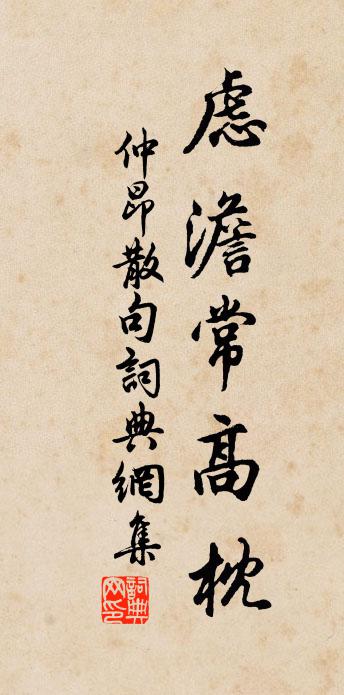 慮澹常高枕
仲昂散句詞典網集
詞典網印